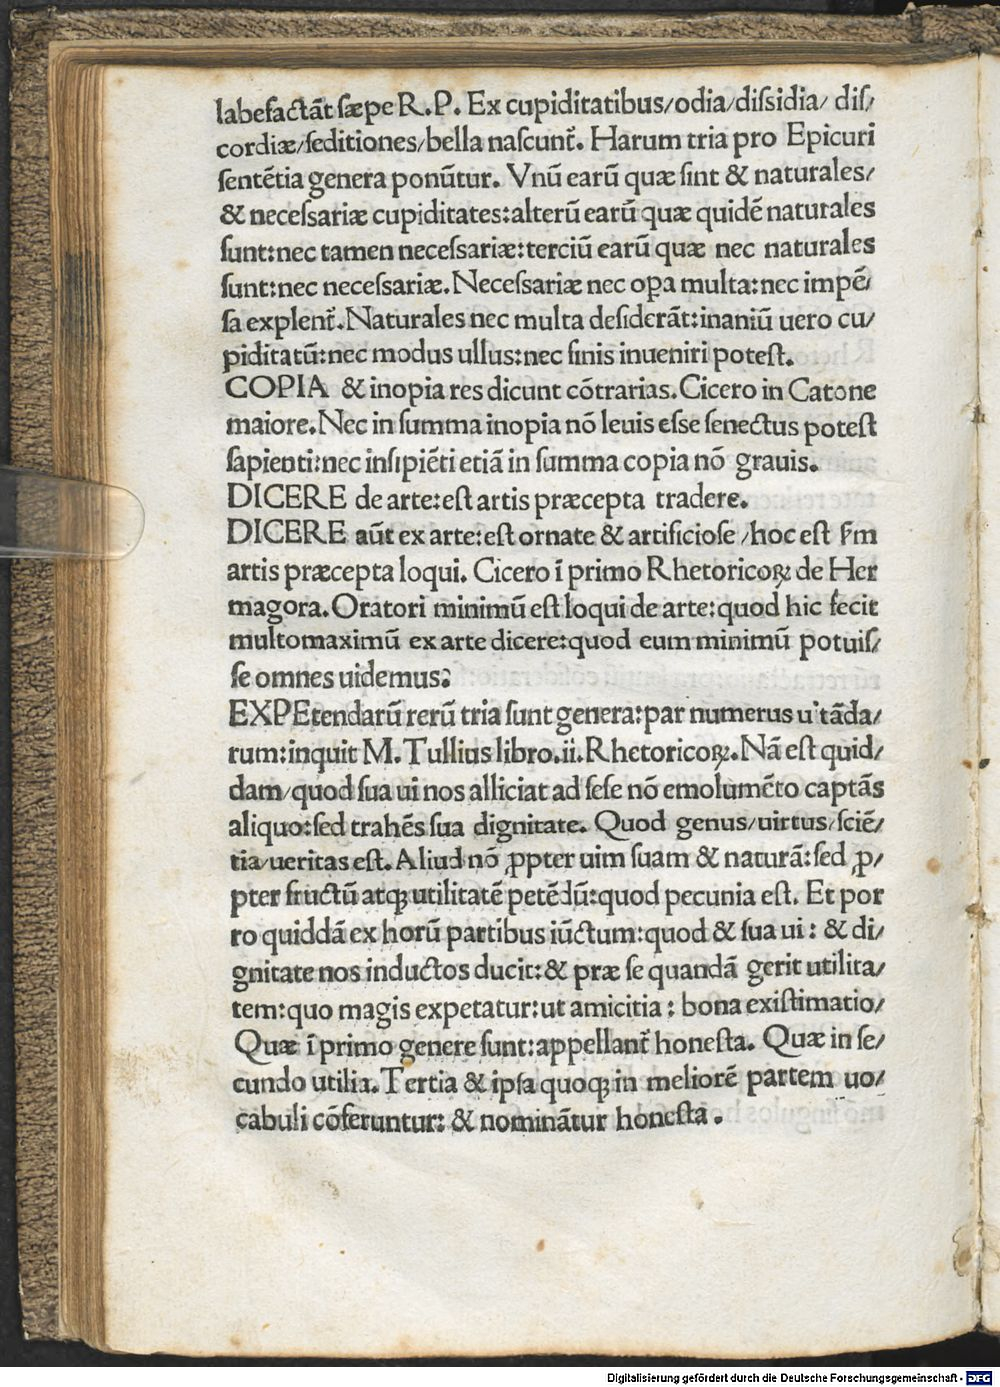 labefactãt sæpe R.P. Ex cupiditatibus/odia/dissidia/ dis/
cordiæ/seditiones/bella nascunt̃. Harum tria pro Epicuri
sentẽtia genera ponũtur. Vnũ earũ quæ sint & naturales/
& necessariæ cupiditates:alterũ earũ quæ quidẽ naturales
sunt:nec tamen necessariæ:terciũ earũ quæ nec naturales
sunt:nec necessariæ. Necessariæ nec oꝑa multa:nec impẽ/
sa explent̃. Naturales nec multa desiderãt:inaniũ uero cu/
piditatũ:nec modus ullus:nec finis inueniri potest.
COPIA & inopia res dicunt cõtrarias. Cicero in Catone
maiore. Nec in summa inopia nõ leuis esse senectus potest
sapienti:nec insipiẽti etiã in summa copia nõ grauis.
DICERE de arte:est artis præcepta tradere.
DICERE aũt ex arte:est ornate & artificiose /hoc est ẜm
artis præcepta loqui. Cicero ĩ primo Rhetoricoꝝ de Her
magora. Oratori minimũ est loqui de arte:quod hic fecit
multomaximũ ex arte dicere:quod eum minimũ potuis/
se omnes uidemus?
EXPEtendarũ rerũ tria sunt genera:par numerus uitãda/
rum:inquit M. Tullius libro.ii. Rhetoricoꝝ. Nã est quid/
dam/quod sua ui nos alliciat ad sese nõ emolumẽto captãs
aliquo:sed trahẽs sua dignitate. Quod genus/uirtus/sciẽ/
tia/ueritas est. Aliud nõ ꝓpter uim suam & naturã:sed ꝓ/
pter fructũ atqꝫ utilitatẽ petẽdũ:quod pecunia est. Et por
ro quiddã ex horũ partibus iũctum:quod & sua ui: & di/
gnitate nos inductos ducit:& præ se quandã gerit utilita/
tem:quo magis expetatur:ut amicitia : bona existimatio/
Quæ ĩ primo genere sunt:appellant̃ honesta. Quæ in se/
cundo utilia. Tertia & ipsa quoqꝫ in meliorẽ partem uo/
cabuli cõferuntur: & nominãtur honesta.
Digitalisierung gefördert durch die Deutsche Forschungsgemeinschaft - DFG